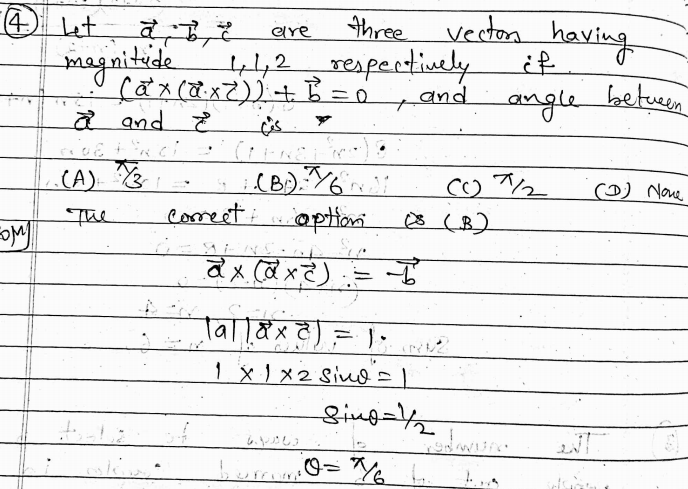 (4.) Let a⃗, b⃗, c⃗ are three vectors having
magnitude 1,1,2 respectively if
(a⃗ × (a⃗ × c⃗)) + b⃗ = 0, and angle between
a⃗ and c⃗ is
(A) π/3 (B) π/6 (C) π/2 (D) None
The correct option is (B)
a⃗ × (a⃗ × c⃗) = -b⃗
|a| |a⃗ × c⃗| = 1.
1 × 1 × 2 sinθ = 1
sinθ = 1/2
θ = π/6